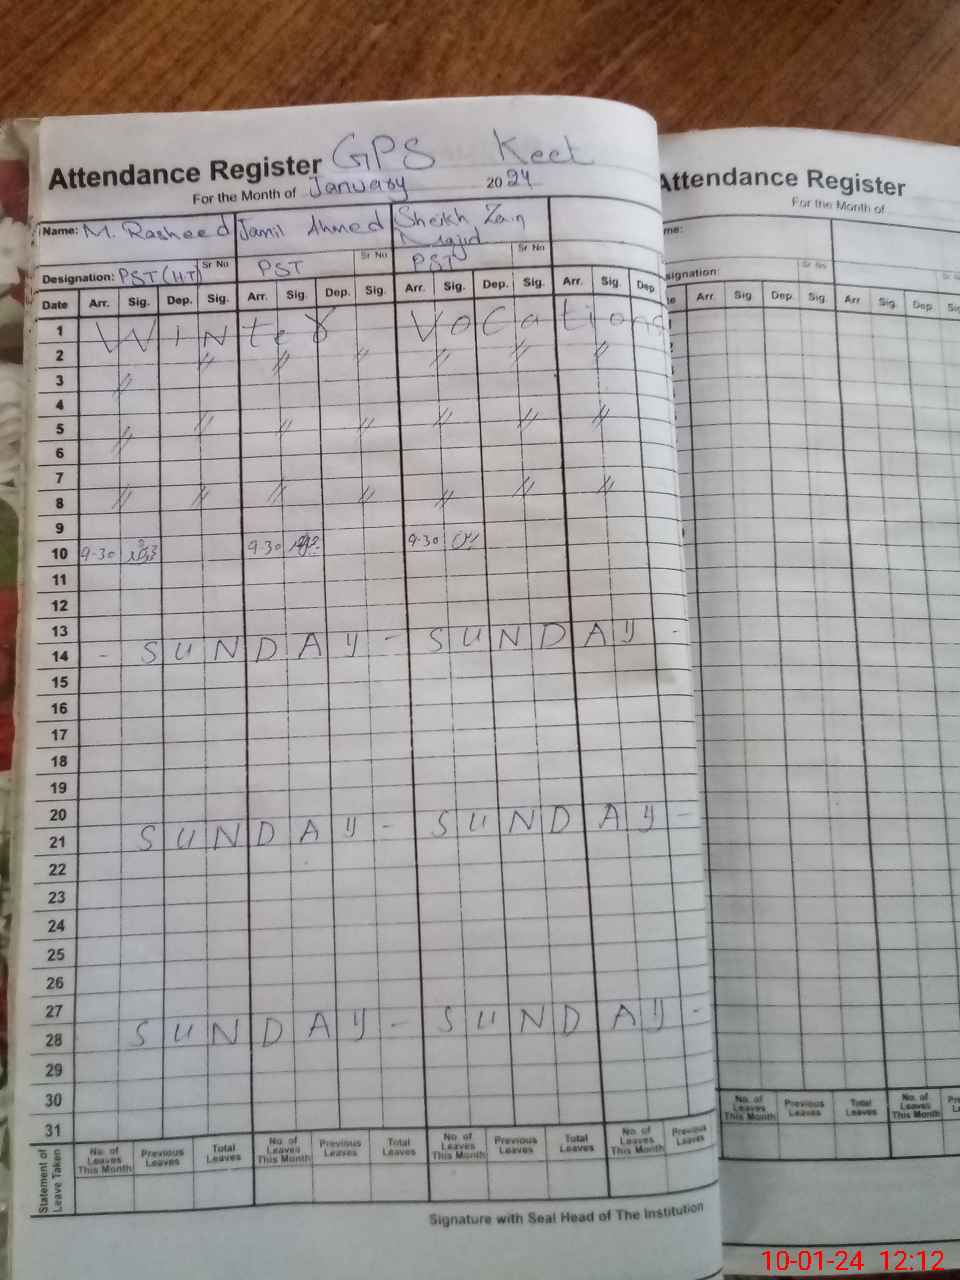 Attendance Register GPS Keet
For the Month of January 2024
Name: M. Rasheed Jamil Ahmed Sheikh Zain Majid
Designation: PST (HT) Sr No PST Sr No PST Sr No
Date Arr. Sig. Dep. Sig. Arr. Sig. Dep. Sig. Arr. Sig. Dep. Sig. Arr. Sig. Dep
1 Winter Vocations
2 〃 〃 〃 〃 〃 〃
3 〃
4
5 〃 〃 〃 〃 〃 〃 〃
6
7
8 〃 〃 〃 〃 〃 〃 〃
9
10 9-30 9-30 9-30
11
12
13
14 - SUNDAY - SUNDAY -
15
16
17
18
19
20
21 SUNDAY - SUNDAY -
22
23
24
25
26
27
28 SUNDAY - SUNDAY -
29
30
31
Statement of Leave Taken
No. of Leaves This Month Previous Leaves Total Leaves No. of Leaves This Month Previous Leaves Total Leaves No. of Leaves This Month Previous Leaves Total Leaves No. of Leaves This Month Previous Leaves
Signature with Seal Head of The Institution
Attendance Register
For the Month of
me:
signation: Sr No
Arr. Sig. Dep. Sig. Arr. Sig. Dep. Sig
No. of Leaves This Month Previous Leaves Total Leaves No. of Leaves This Month
10-01-24 12:12